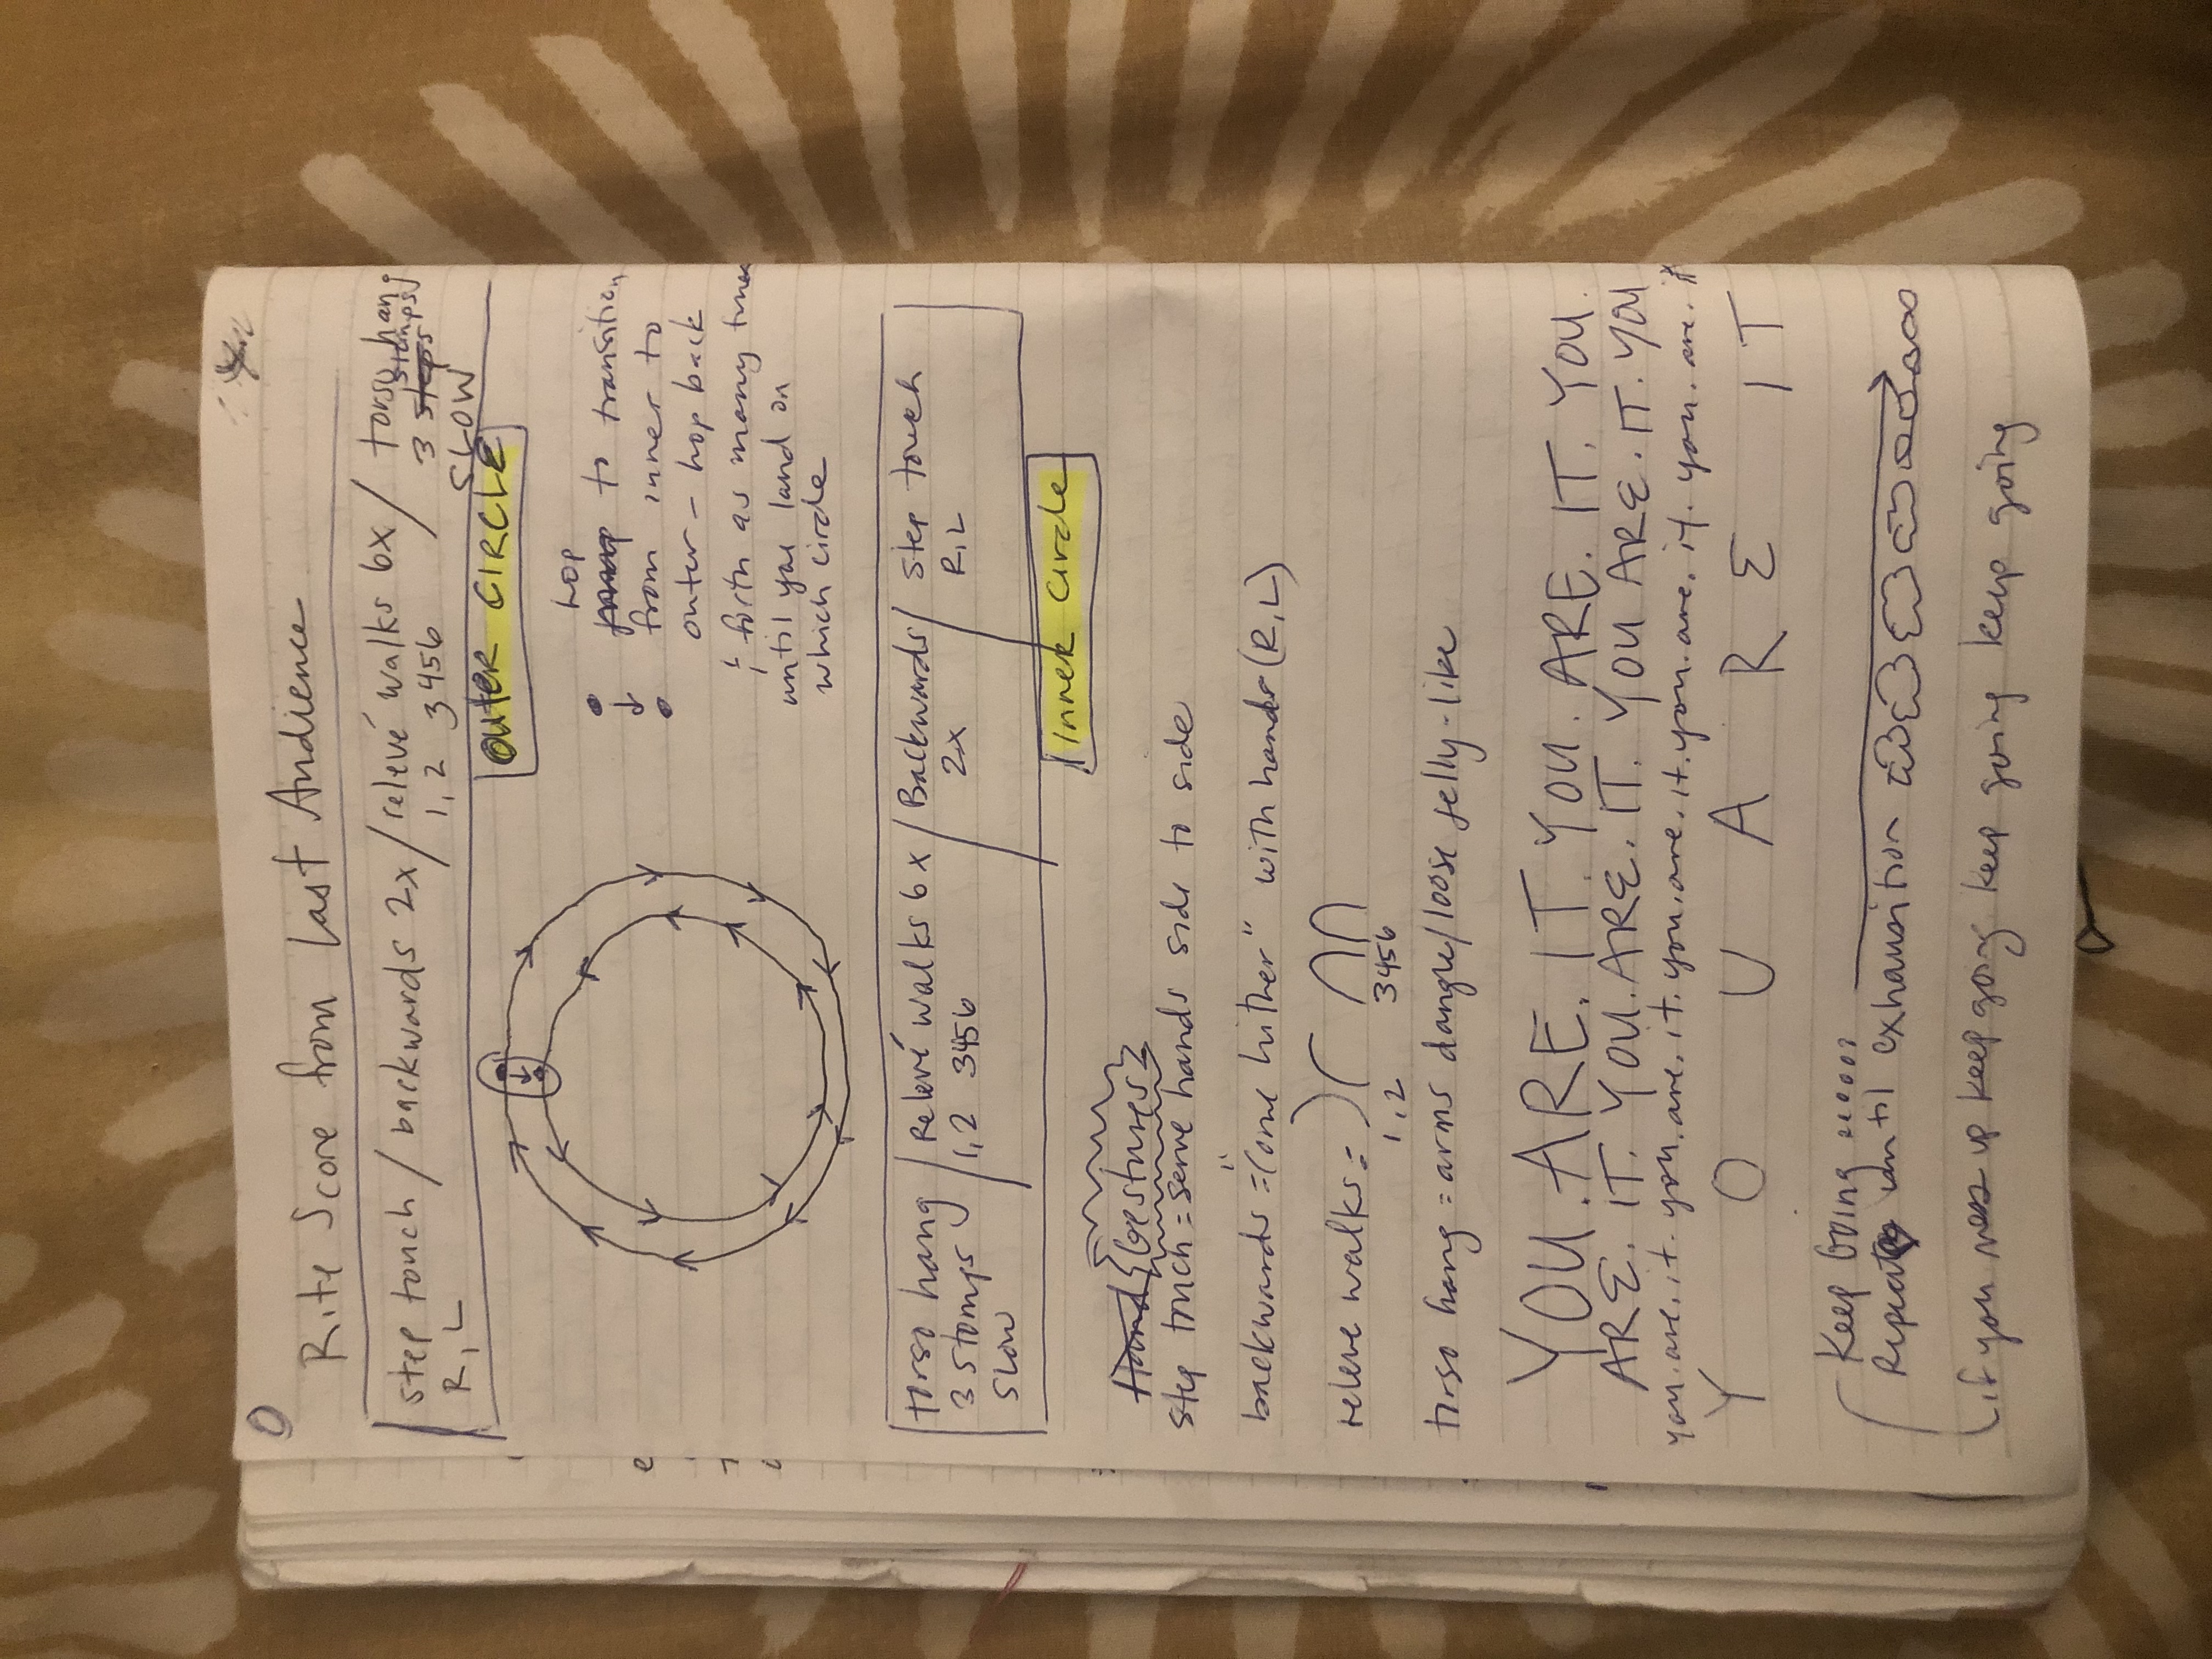 Rite Score from Last Audience
step touch / backwards 2x / relevé walks 6x / torso hang
R, L 1, 2 3456 3 steps stomps
SLOW
OUTER CIRCLE
hop
to transition
from inner to
outer - hop back
& forth as many times
until you land on
which circle
torso hang / Relevé walks 6x / Backwards / step touch
3 stomps 1, 2 3456 2x R, L
SLOW
Inner Circle
Hand Gestures
step touch = serve hands side to side
backwards = "come hither" with hands (R, L)
releve walks =
1, 2 3456
torso hang = arms dangle/loose jelly-like
YOU. ARE. IT. YOU. ARE. IT. YOU.
ARE. IT. YOU. ARE. IT. YOU ARE. IT. YOU
you. are. it. you. are. it. you. are. it. you. are. it. you. are. it
Y O U A R E I T
Keep Going
Repeat until exhaustion
(if you mess up keep going keep going keep going